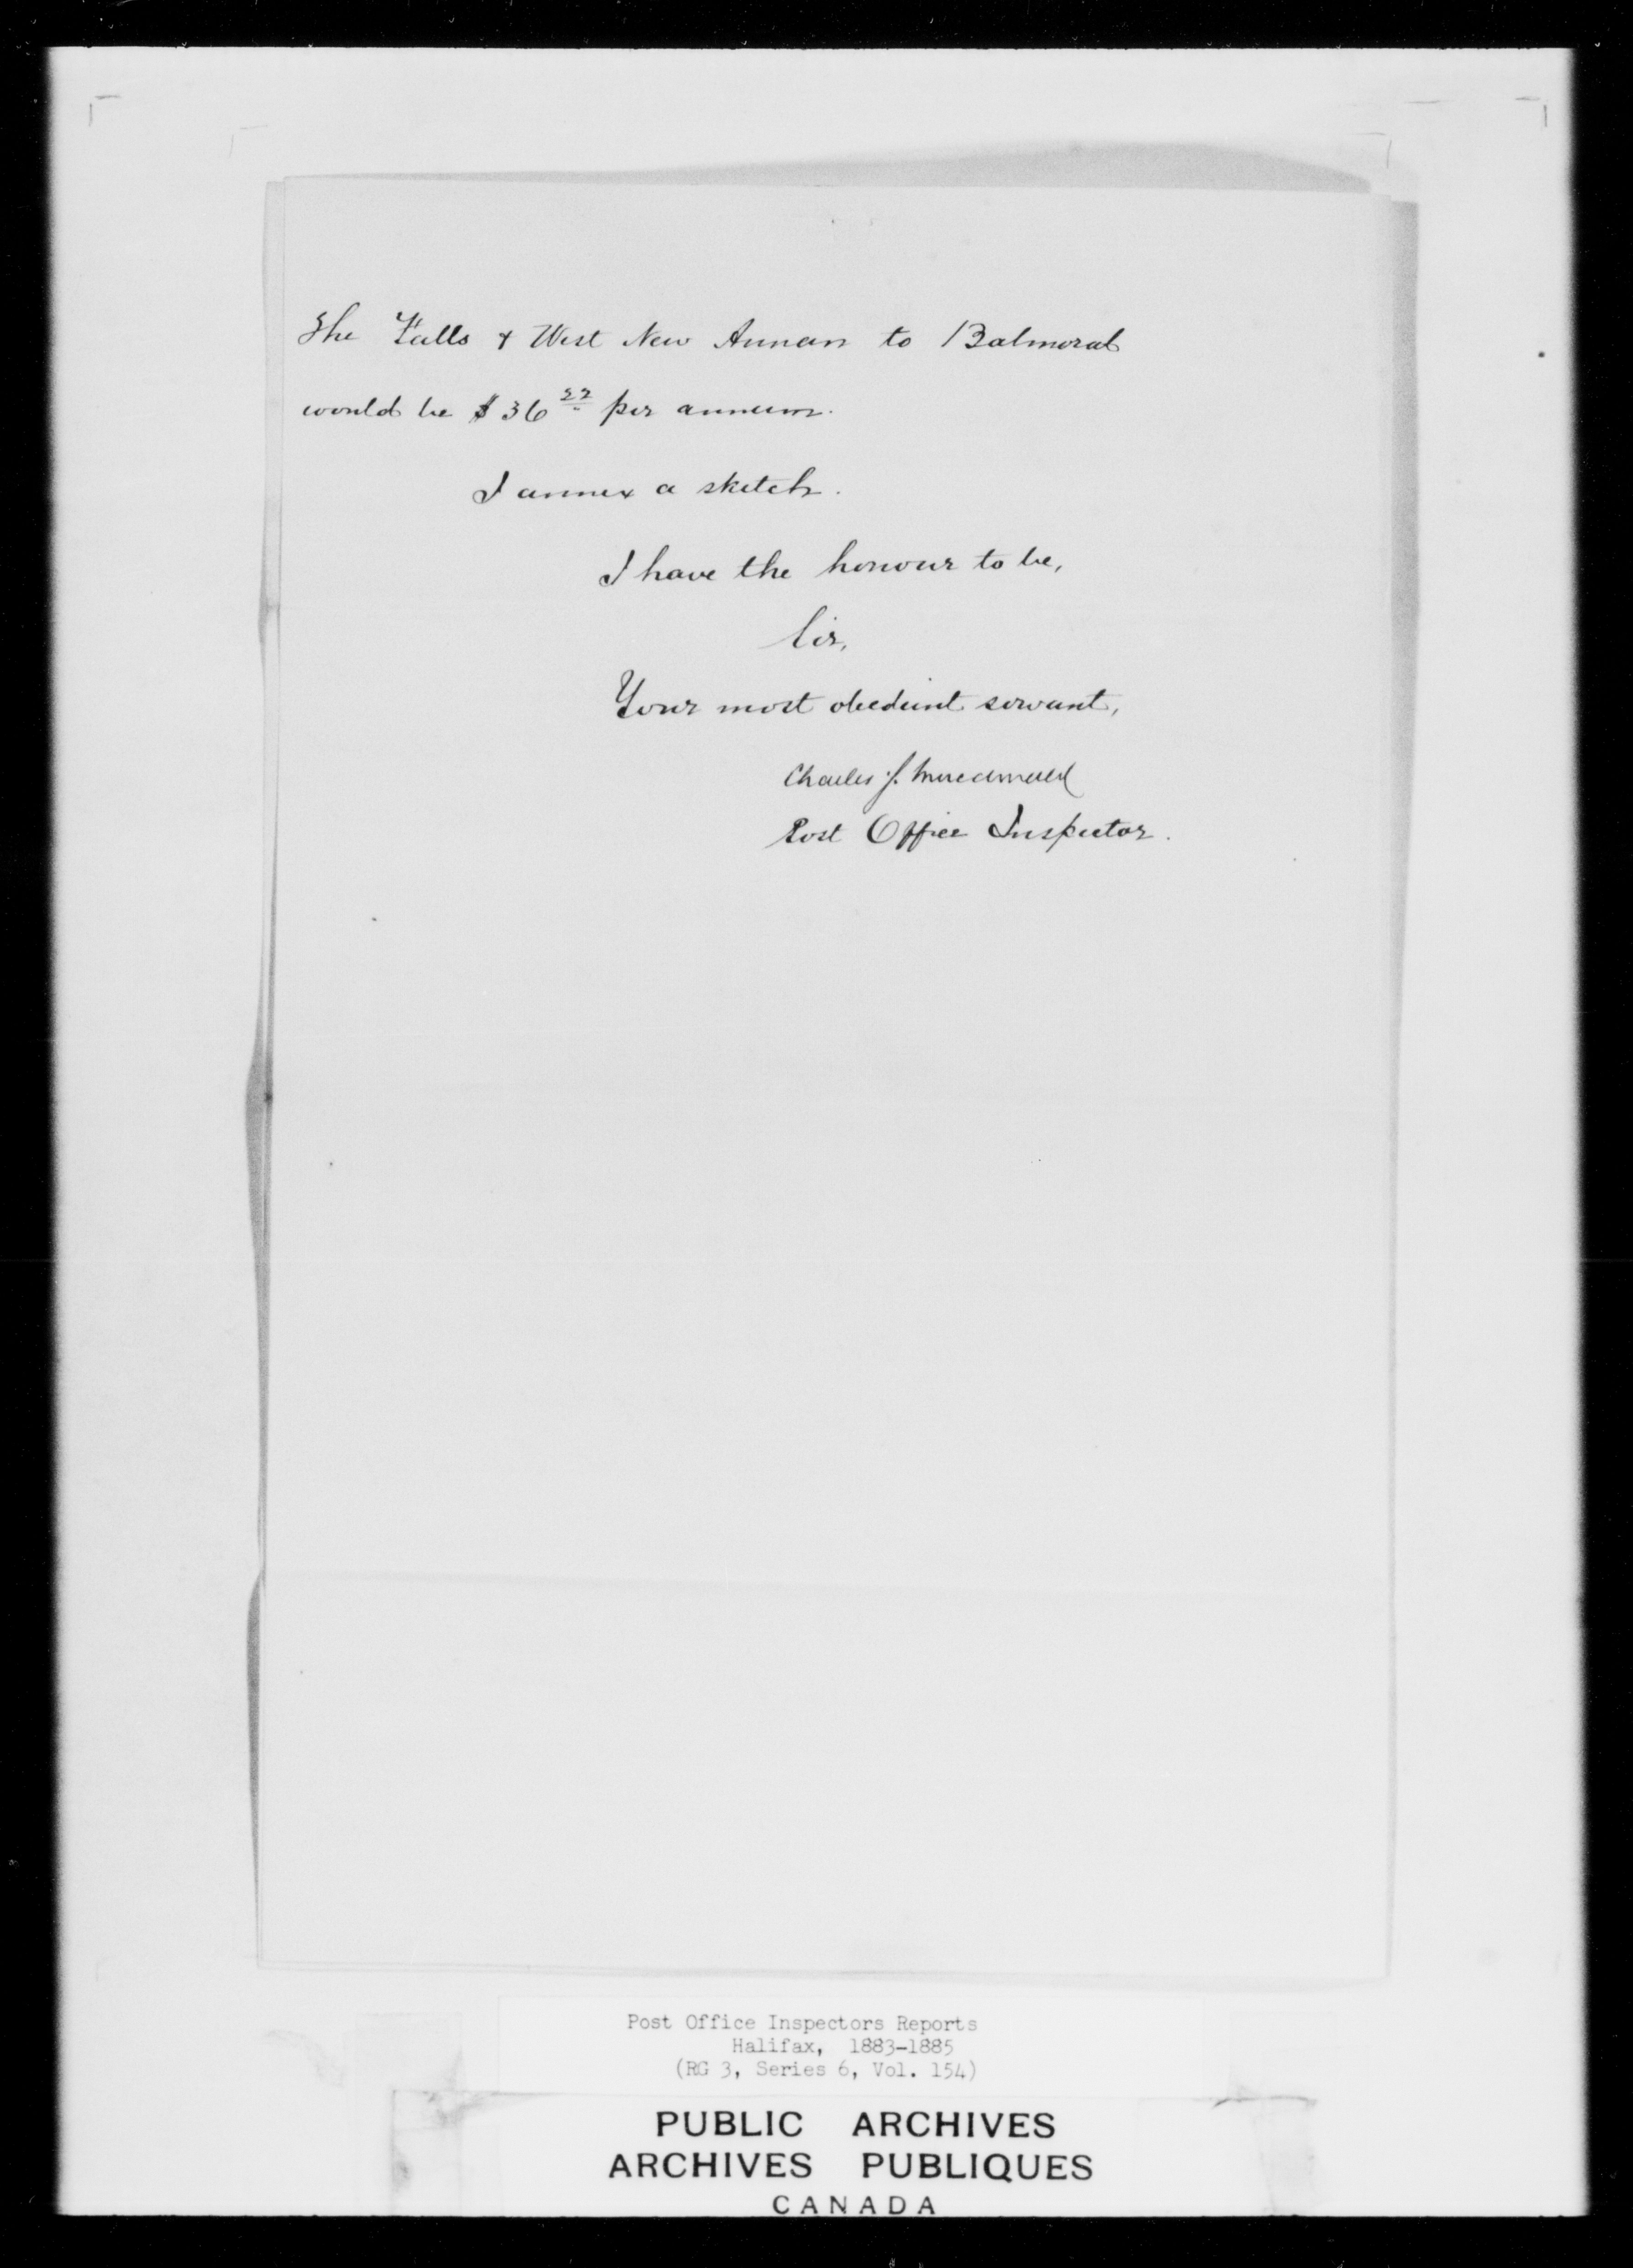 The Falls & West New Annan to Balmoral
would be $36 22 per annum.
I annex a sketch.
I have the honour to be,
Sir,
Your most obedient servant,
Charles J. Macdonald
Post Office Inspector.
Post Office Inspectors Reports
Halifax, 1883-1885
(RG 3, Series 6, Vol. 154)
PUBLIC ARCHIVES
ARCHIVES PUBLIQUES
CANADA